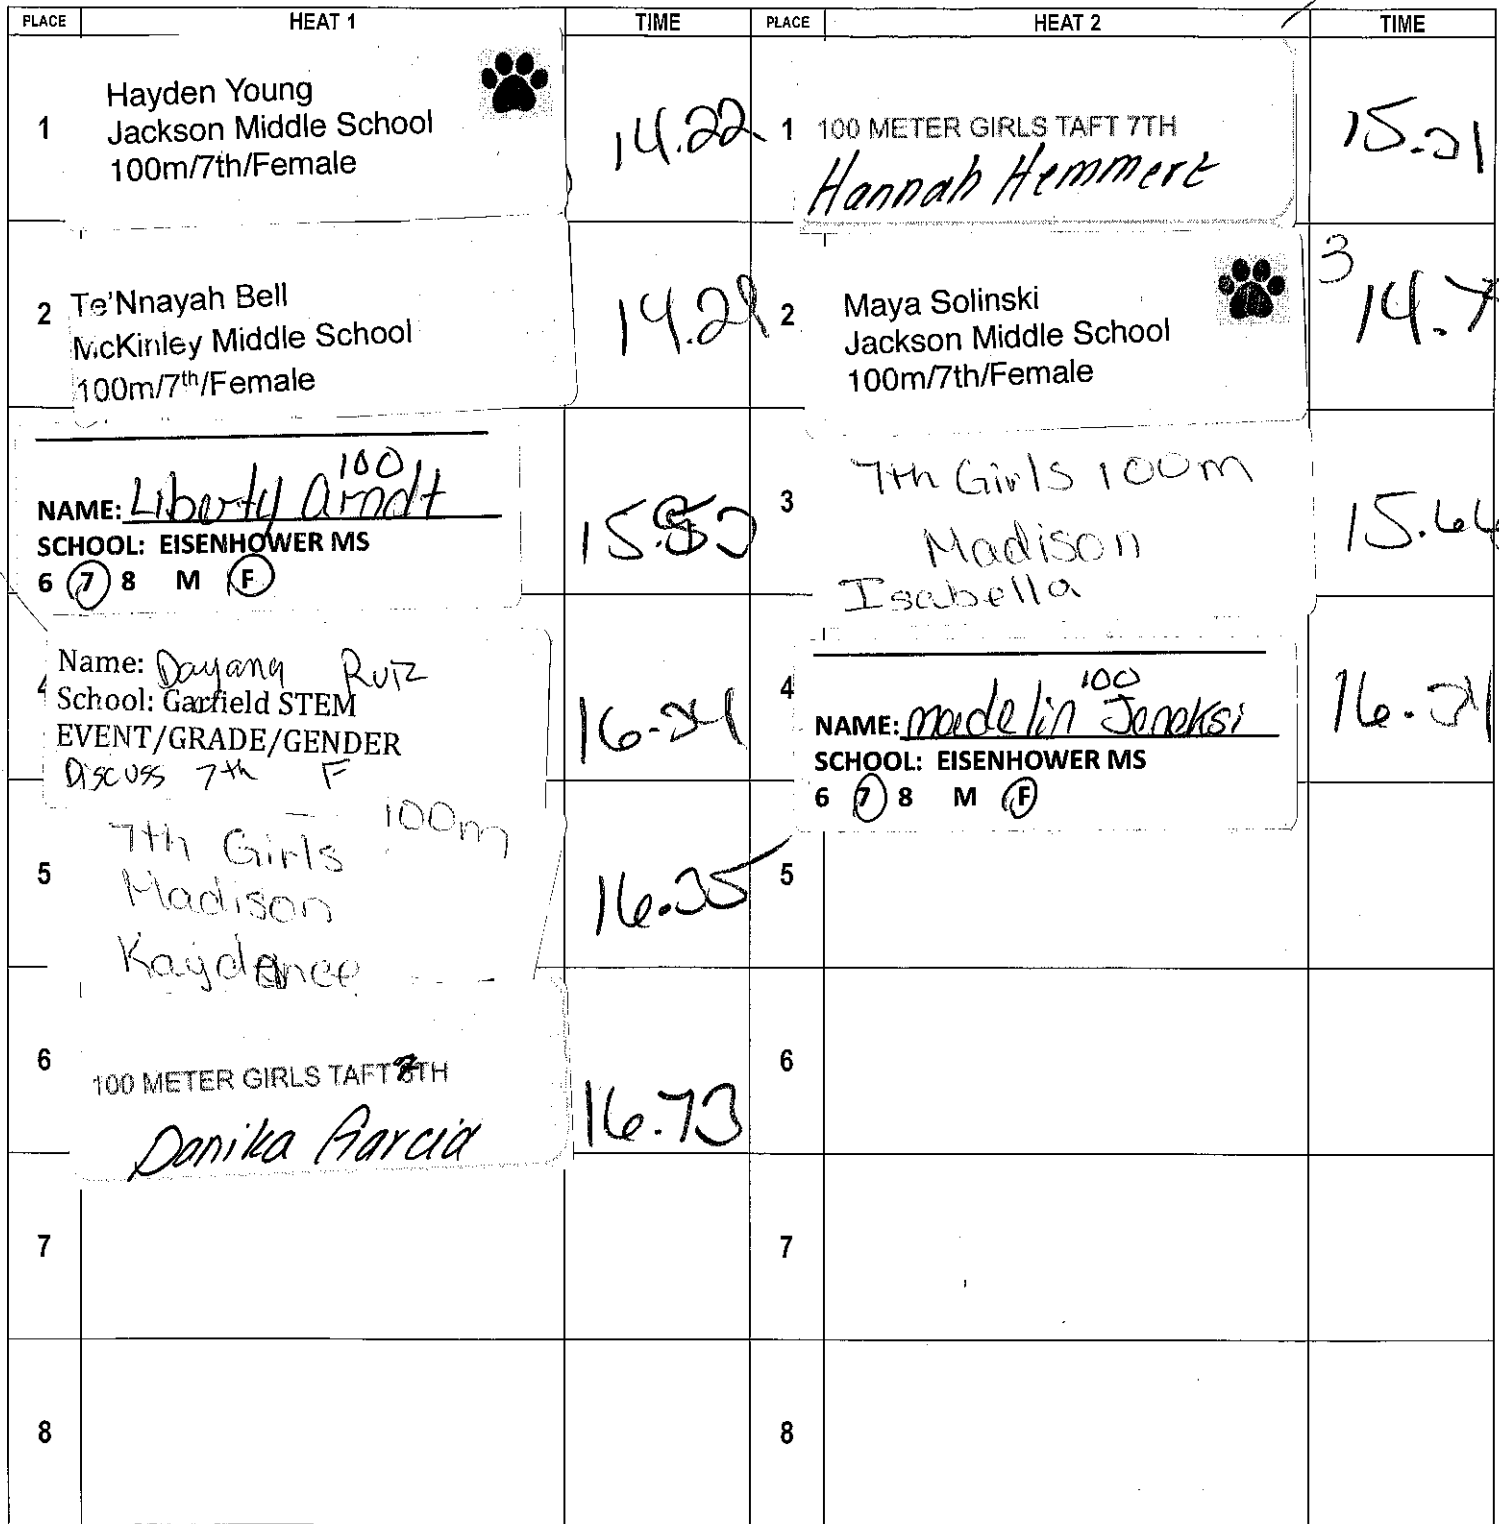 PLACE HEAT 1 TIME PLACE HEAT 2 TIME
1
Hayden Young
Jackson Middle School
100m/7th/Female
14.22
1
100 METER GIRLS TAFT 7TH
Hannah Hemmert
15.21
2
Te'Nnayah Bell
McKinley Middle School
100m/7th/Female
2
Maya Solinski
Jackson Middle School
100m/7th/Female
3
100
NAME: Liberty Arndt
SCHOOL: EISENHOWER MS
6 7 8 M F
3
7th Girls 100m
Madison
Isabella
4
Name: Dayana Ruiz
School: Garfield STEM
EVENT/GRADE/GENDER
Discuss 7th F
4
100
NAME: madelin
SCHOOL: EISENHOWER MS
6 7 8 M F
5
7th Girls 100m
Madison
Kaydence
16.35
5
6
100 METER GIRLS TAFT 7TH
Danika Garcia
16.73
6
7
7
8
8